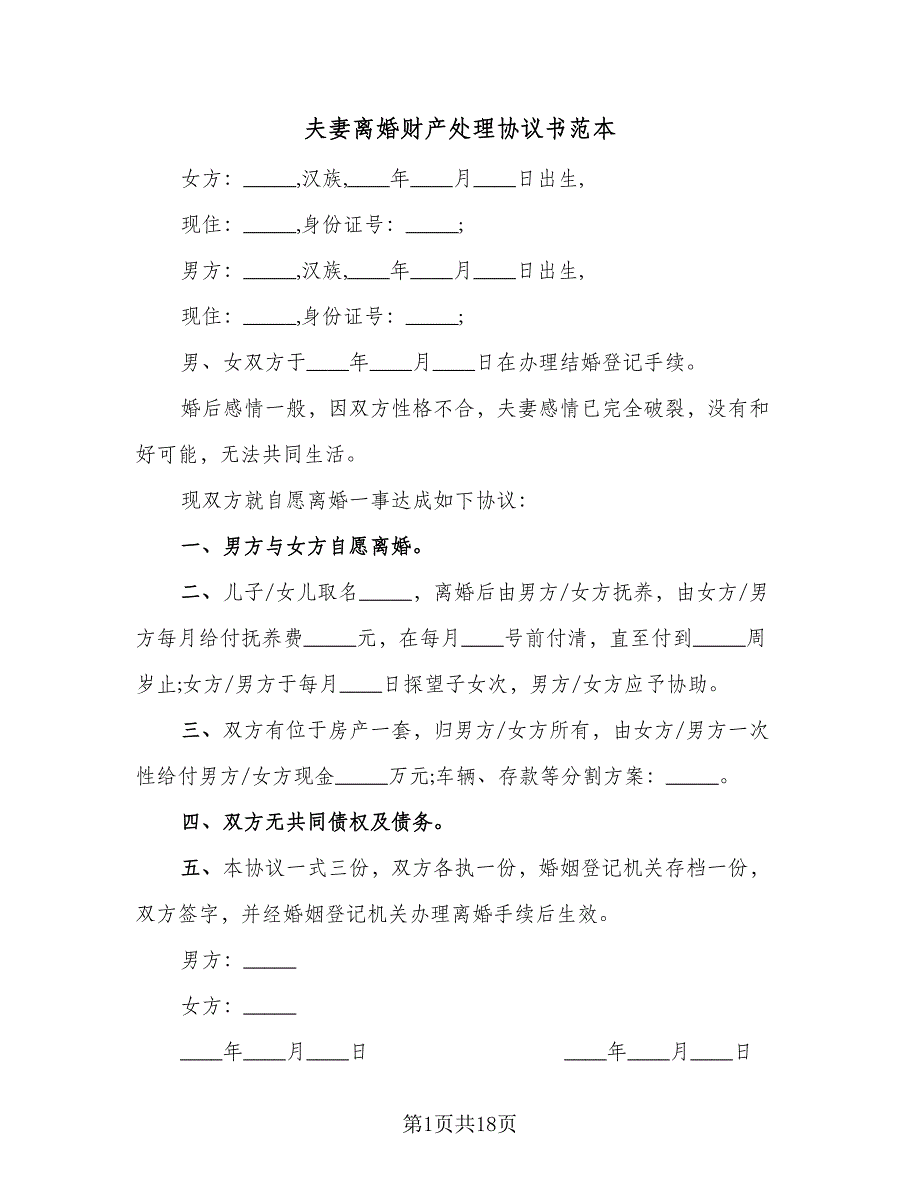 夫妻离婚财产处理协议书范本
女方：_____,汉族,____年____月____日出生,
现住：_____,身份证号：_____;
男方：_____,汉族,____年____月____日出生,
现住：_____,身份证号：_____;
男、女双方于____年____月____日在办理结婚登记手续。
婚后感情一般，因双方性格不合，夫妻感情已完全破裂，没有和
好可能，无法共同生活。
现双方就自愿离婚一事达成如下协议：
一、男方与女方自愿离婚。
二、儿子/女儿取名_____，离婚后由男方/女方抚养，由女方/男
方每月给付抚养费_____元，在每月____号前付清，直至付到_____周
岁止;女方/男方于每月____日探望子女次，男方/女方应予协助。
三、双方有位于房产一套，归男方/女方所有，由女方/男方一次
性给付男方/女方现金_____万元;车辆、存款等分割方案：_____。
四、双方无共同债权及债务。
五、本协议一式三份，双方各执一份，婚姻登记机关存档一份，
双方签字，并经婚姻登记机关办理离婚手续后生效。
男方：_____
女方：_____
____年____月____日 ____年____月____日
第1页共18页